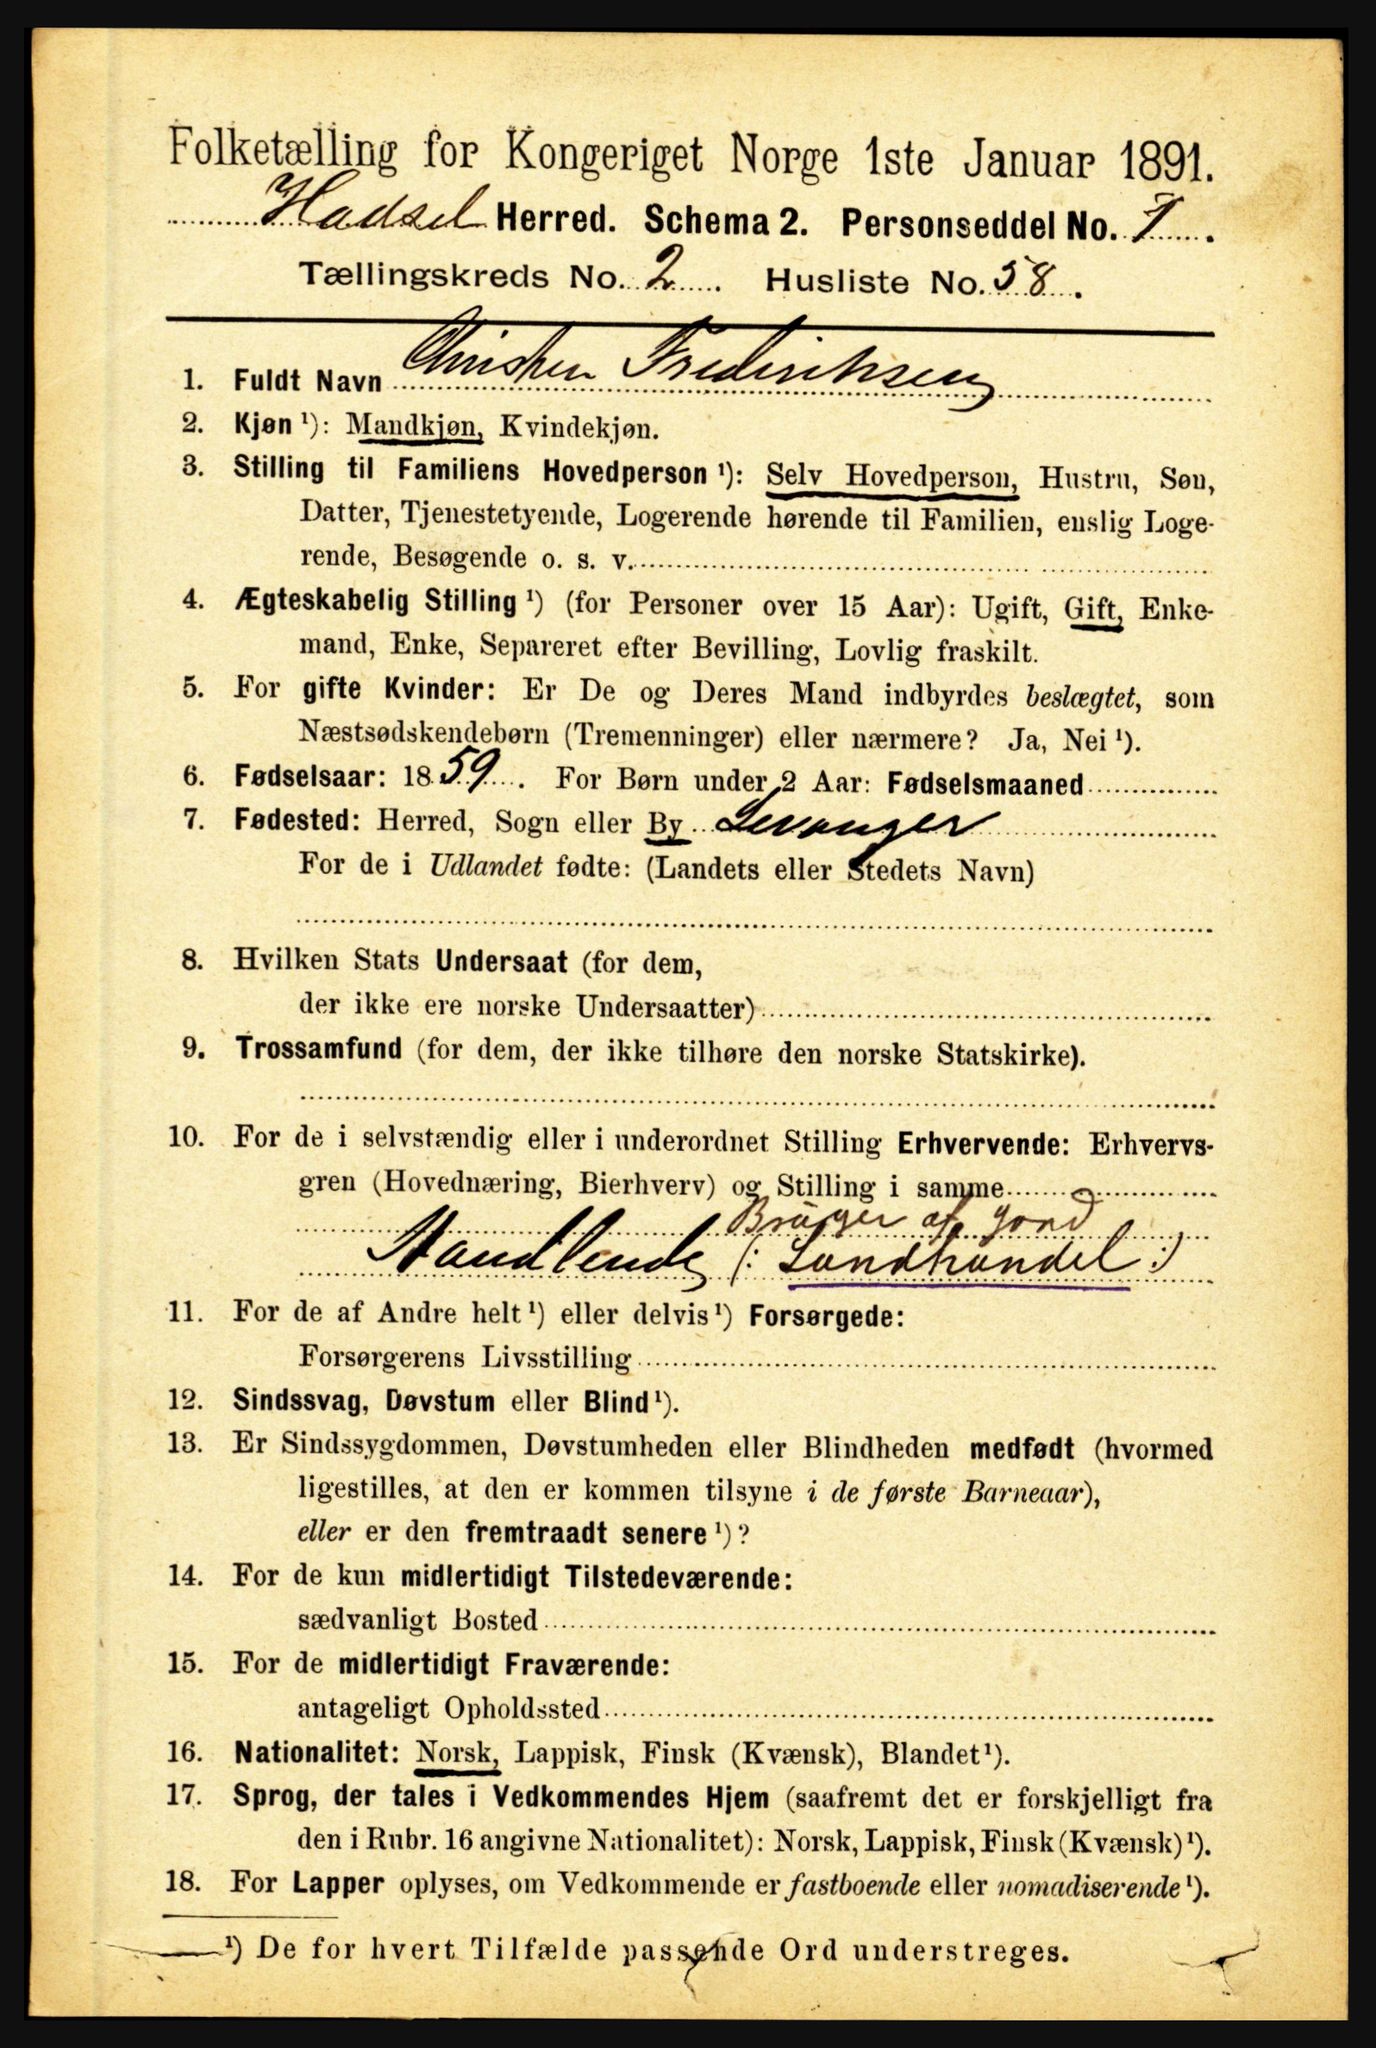 Folketælling for Kongeriget Norge 1ste Januar 1891.
Hadsel Herred. Schema 2. Personseddel No. 1.
Tællingskreds No. 2. Husliste No. 58.
1. Fuldt Navn Christen Frederiksen
2. Kjøn ¹): Mandkjøn, Kvindekjøn.
3. Stilling til Familiens Hovedperson ¹): Selv Hovedperson, Hustru, Søn,
Datter, Tjenestetyende, Logerende hørende til Familien, enslig Loge-
rende, Besøgende o. s. v.
4. Ægteskabelig Stilling ¹) (for Personer over 15 Aar): Ugift, Gift, Enke-
mand, Enke, Separeret efter Bevilling, Lovlig fraskilt.
5. For gifte Kvinder: Er De og Deres Mand indbyrdes beslægtet, som
Næstsødskendebørn (Tremenninger) eller nærmere? Ja, Nei ¹).
6. Fødselsaar: 1859. For Børn under 2 Aar: Fødselsmaaned
7. Fødested: Herred, Sogn eller By Levanger
For de i Udlandet fødte: (Landets eller Stedets Navn)
8. Hvilken Stats Undersaat (for dem,
der ikke ere norske Undersaatter)
9. Trossamfund (for dem, der ikke tilhøre den norske Statskirke).
10. For de i selvstændig eller i underordnet Stilling Erhvervende: Erhvervs-
gren (Hovednæring, Bierhverv) og Stilling i samme
Bruger af Jord
Handlende (: Landhandel :)
11. For de af Andre helt ¹) eller delvis ¹) Forsørgede:
Forsørgerens Livsstilling
12. Sindssvag, Døvstum eller Blind ¹).
13. Er Sindssygdommen, Døvstumheden eller Blindheden medfødt (hvormed
ligestilles, at den er kommen tilsyne i de første Barneaar),
eller er den fremtraadt senere ¹)?
14. For de kun midlertidigt Tilstedeværende:
sædvanligt Bosted
15. For de midlertidigt Fraværende:
antageligt Opholdssted
16. Nationalitet: Norsk, Lappisk, Finsk (Kvænsk), Blandet ¹).
17. Sprog, der tales i Vedkommendes Hjem (saafremt det er forskjelligt fra
den i Rubr. 16 angivne Nationalitet): Norsk, Lappisk, Finsk (Kvænsk) ¹).
18. For Lapper oplyses, om Vedkommende er fastboende eller nomadiserende ¹).
¹) De for hvert Tilfælde passende Ord understreges.